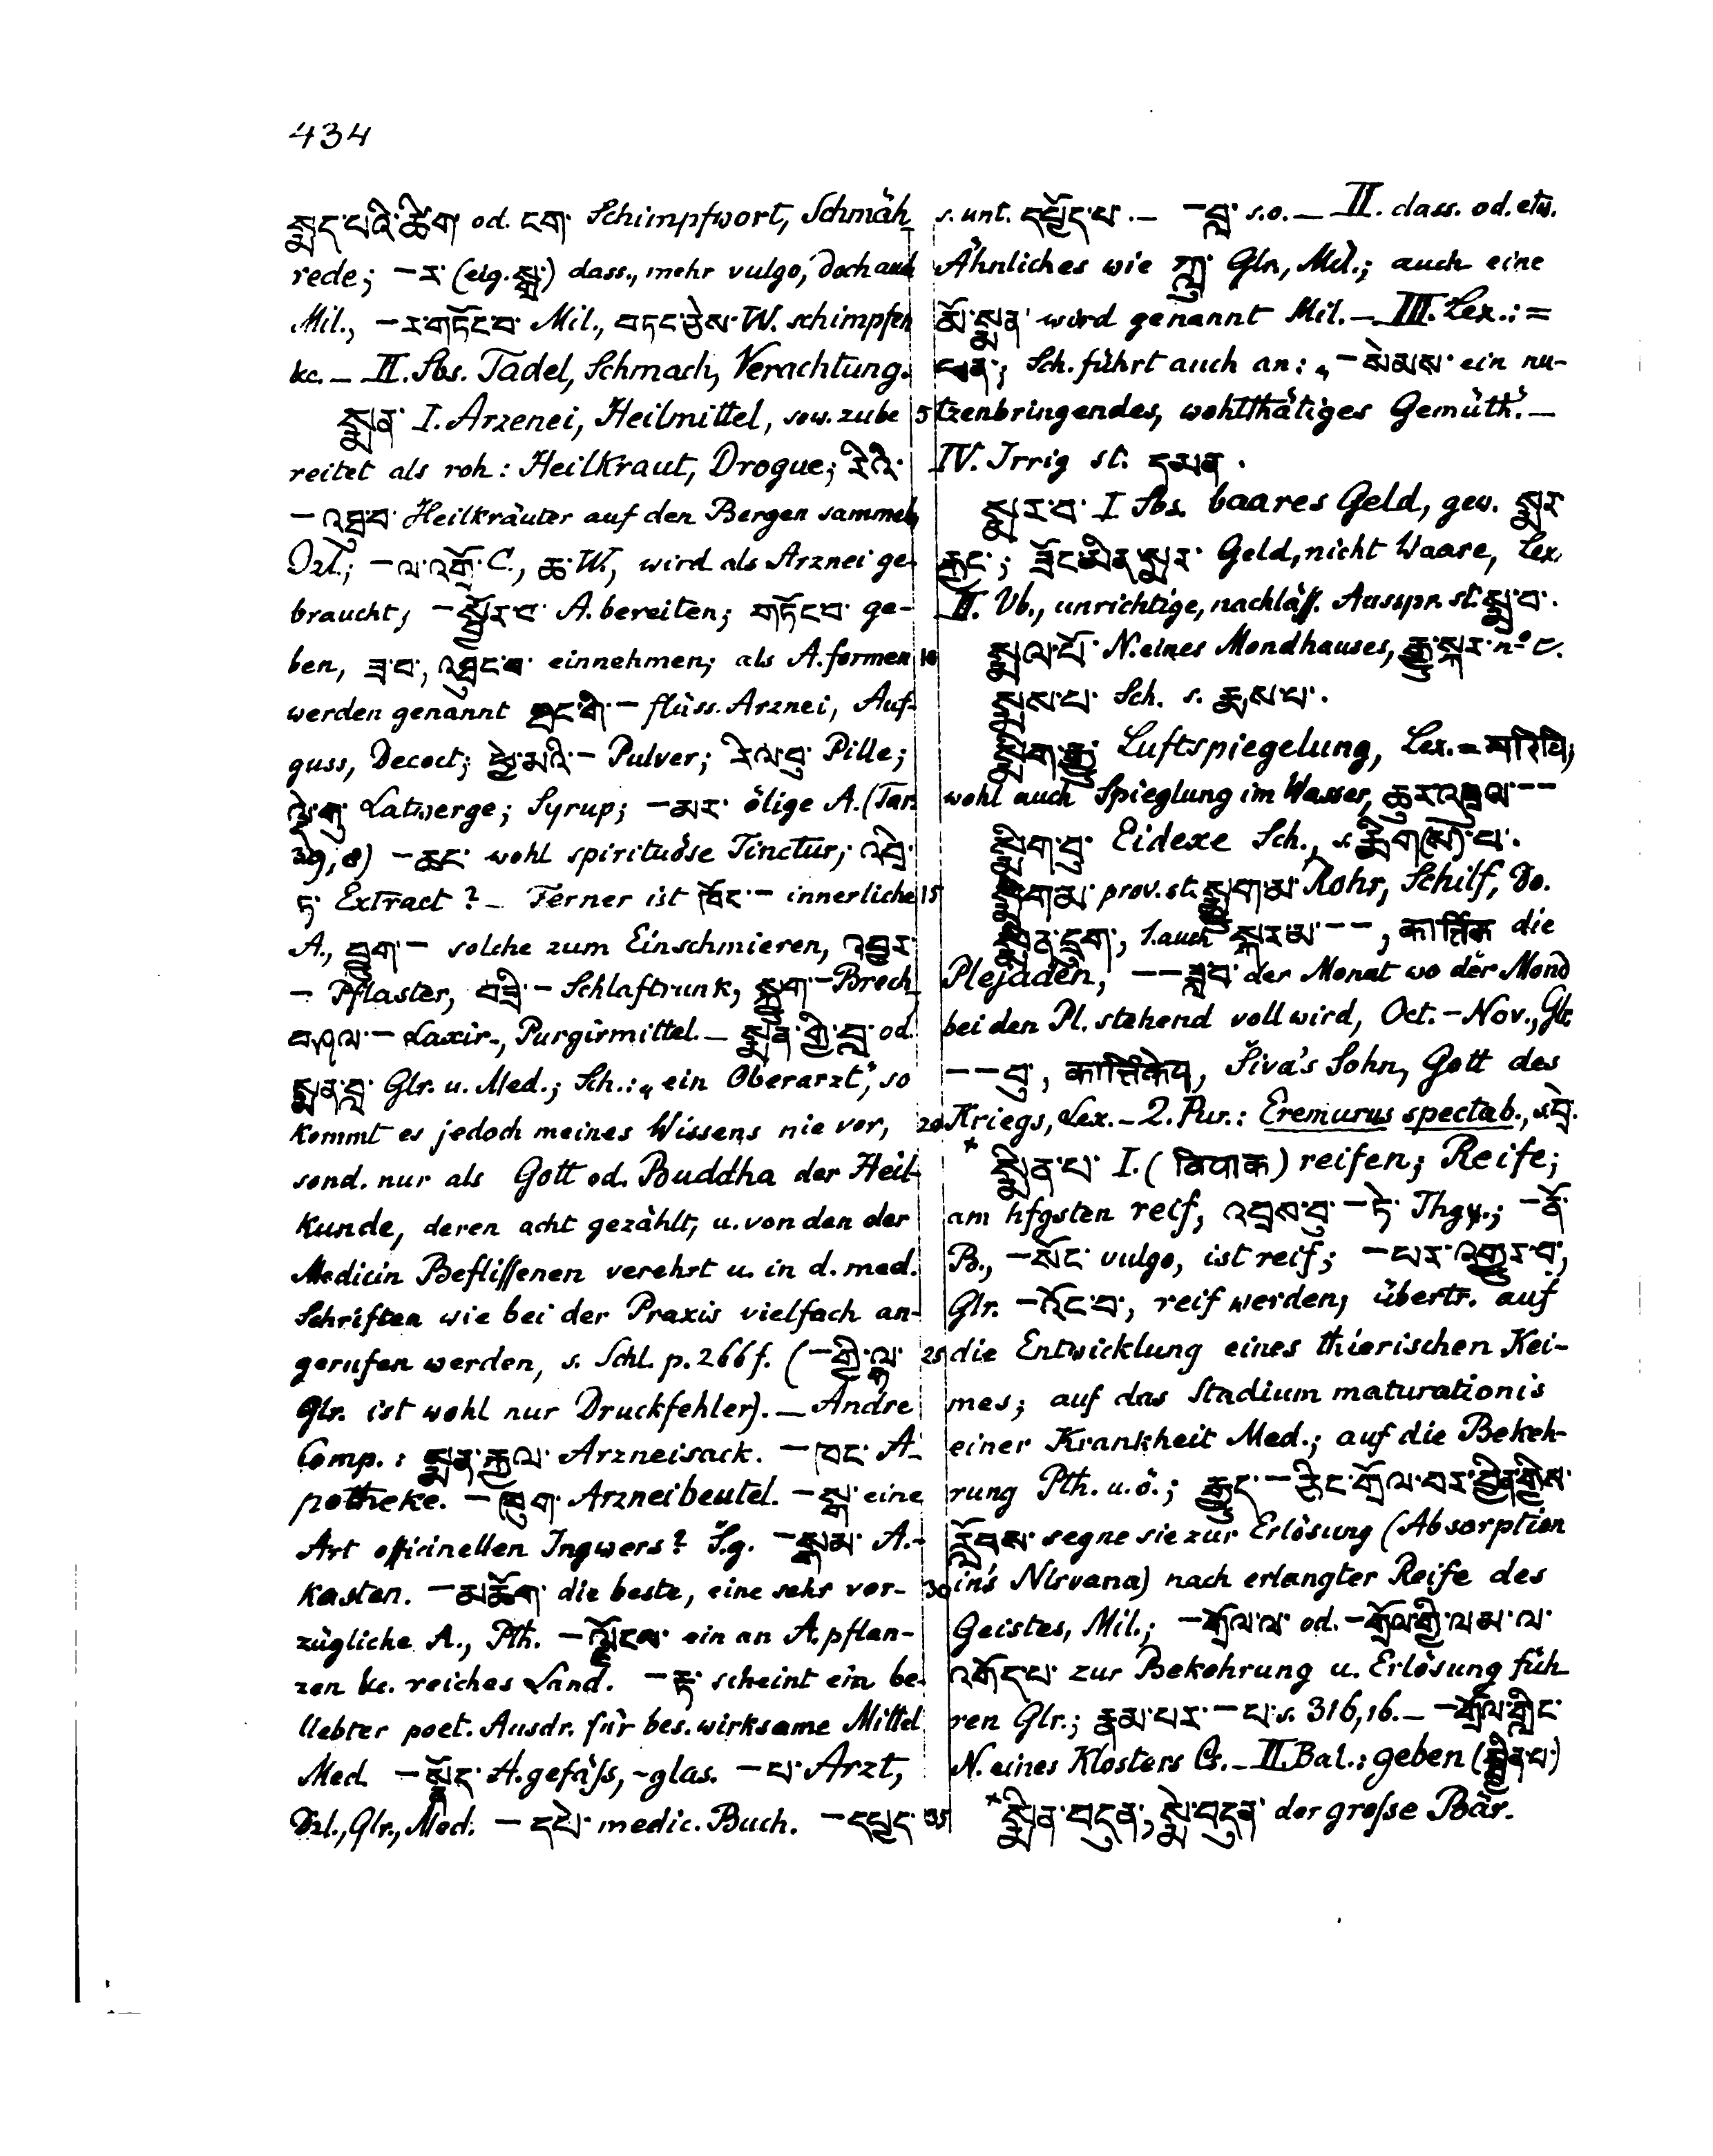 434
སྨད་པའི་ཚིག od. ངག Schimpfwort, Schmäh_
rede; — ར་ (eig. སྒྲ་) dass., mehr vulgo, doch auch
Mil., — ར་གཏོང་བ་ Mil., བཏང་ཅེས་ W. schimpfen
&c. — II. Sbs. Tadel, Schmach, Verachtung.
སྨན་ I. Arzenei, Heilmittel, sow. zube
reitet als roh: Heilkraut, Drogue; རིའི་
— འཐུ་བ་ Heilkräuter auf den Bergen sammeln
Dzl.; — ལ་འགྲོ་ C., ཆ་ W., wird als Arznei ge-
braucht; — སྦྱོར་བ་ A. bereiten; གཏོང་བ་ ge-
ben, ཟ་བ་, འཐུང་བ་ einnehmen; als A. formen
werden genannt ཐང་གི་ — flüss. Arznei, Auf-
guss, Decoct; ཕྱེ་མའི་ — Pulver; རིལ་བུ་ Pille;
ལྡེ་གུ་ Latwerge; Syrup; — མར་ ölige A. (Tar.
39, 8) — ཆང་ wohl spirituöse Tinctur;
Extract? — Ferner ist ཁོང་ — innerliche
A., བྱུག་ — solche zum Einschmieren, འབྱར་
— Pflaster, — Schlaftrunk, སྐྱུག་ — Brech_
བཤལ་ — Laxir-, Purgirmittel. — སྨན་གྱི་བླ་ od.
སྨན་བླ་ Glr. u. Med.; Sch.: „ein Oberarzt“, so
kommt es jedoch meines Wissens nie vor,
sond. nur als Gott od. Buddha der Heil-
kunde, deren acht gezählt, u. von den der
Medicin Beflissenen verehrt u. in d. med.
Schriften wie bei der Praxis vielfach an-
gerufen werden, s. Schl. p. 266 f. (— གྱི་ལྷ་
Glr. ist wohl nur Druckfehler). — Andre
Comp.: སྨན་རྐྱལ་ Arzneisack. — ཁང་ A-
potheke. — ཁུག་ Arzneibeutel. — སྒ་ eine
Art officinellen Ingwers? S.g. — སྒམ་ A.-
kasten. — མཆོག་ die beste, eine sehr vor-
zügliche A., Pth. — ལྗོངས་ ein an A.pflan-
zen &c. reiches Land. — རྟ་ scheint ein be-
liebter poet. Ausdr. für bes. wirksame Mittel
Med. — སྣོད་ A.gefäss, -glas. — པ་ Arzt,
Dzl., Glr., Med. — དཔེ་ medic. Buch. — དཔྱད་
s. unt. དཔྱོད་པ་. — — བླ་ s.o. — II. dass. od. etw.
Ähnliches wie ཀླུ་ Glr., Mil.; auch eine
མོ་སྨན་ wird genannt Mil. — III. Lex.: =
ཕན་; Sch. führt auch an: „— སེམས་ ein nu-
5 tzenbringendes, wohlthätiges Gemüth“. —
IV. Irrig st. དམན་.
སྨར་བ་ I Sbs. baares Geld, gew. སྨར་
རྐྱང་; ཟོང་མིན་སྨར་ Geld, nicht Waare, Lex.
II. Vb., unrichtige, nachläss. Ausspr. st. སྨྲ་བ་.
10 སྨལ་པོ་ N. eines Mondhauses, རྒྱུ་སྐར་ nº
སྨས་པ་ Sch. s. རྨས་པ་.
སྨིག་རྒྱུ་ Luftspiegelung, Lex. =
wohl auch Spieglung im Wasser,
སྨིག་བུ་ Eidexe Sch., s.
15 སྨིགམ་ prov. st. སྨྱུག་མ་ Rohr, Schilf, Do.
སྨིན་དྲུག་, 1. auch སྐར་མ་ — —, कार्त्तिक die
Plejaden, — — ཟླ་བ་ der Monat wo der Mond
bei den Pl. stehend voll wird, Oct. – Nov., Glr.
— — བུ་, कार्त्तिकेय, Śiva's Sohn, Gott des
20 Kriegs, Lex. — 2. Pur.: Eremurus spectab.,
* སྨིན་པ་ I. (विपाक) reifen; Reife;
am hfgsten reif, འབྲས་བུ་ — ཏེ་ Thgy.; — ནོ་
B., — སོང་ vulgo, ist reif; — པར་འགྱུར་བ་,
Glr. — འོང་བ་, reif werden; übertr. auf
25 die Entwicklung eines thierischen Kei-
mes; auf das Stadium maturationis
einer Krankheit Med.; auf die Bekeh-
rung Pth. u. ö.; རྒྱུད་ — ཅིང་གྲོལ་བར་བྱིན་གྱིས་
རློབས་ segne sie zur Erlösung (Absorption
30 in's Nirvana) nach erlangter Reife des
Geistes, Mil.; — གྲོལ་ལ་ od. — གྲོལ་གྱི་ལམ་ལ་
འགོད་པ་ zur Bekehrung u. Erlösung füh-
ren Glr.; རྣམ་པར་ — པ་ s. 316, 16. — — གྲོལ་གླིང་
N. eines Klosters Cs. — II. Bal.: geben (སྦྱིན་པ་)
35 * སྨིན་བདུན་, སྨེ་བདུན་ der grosse Bär.